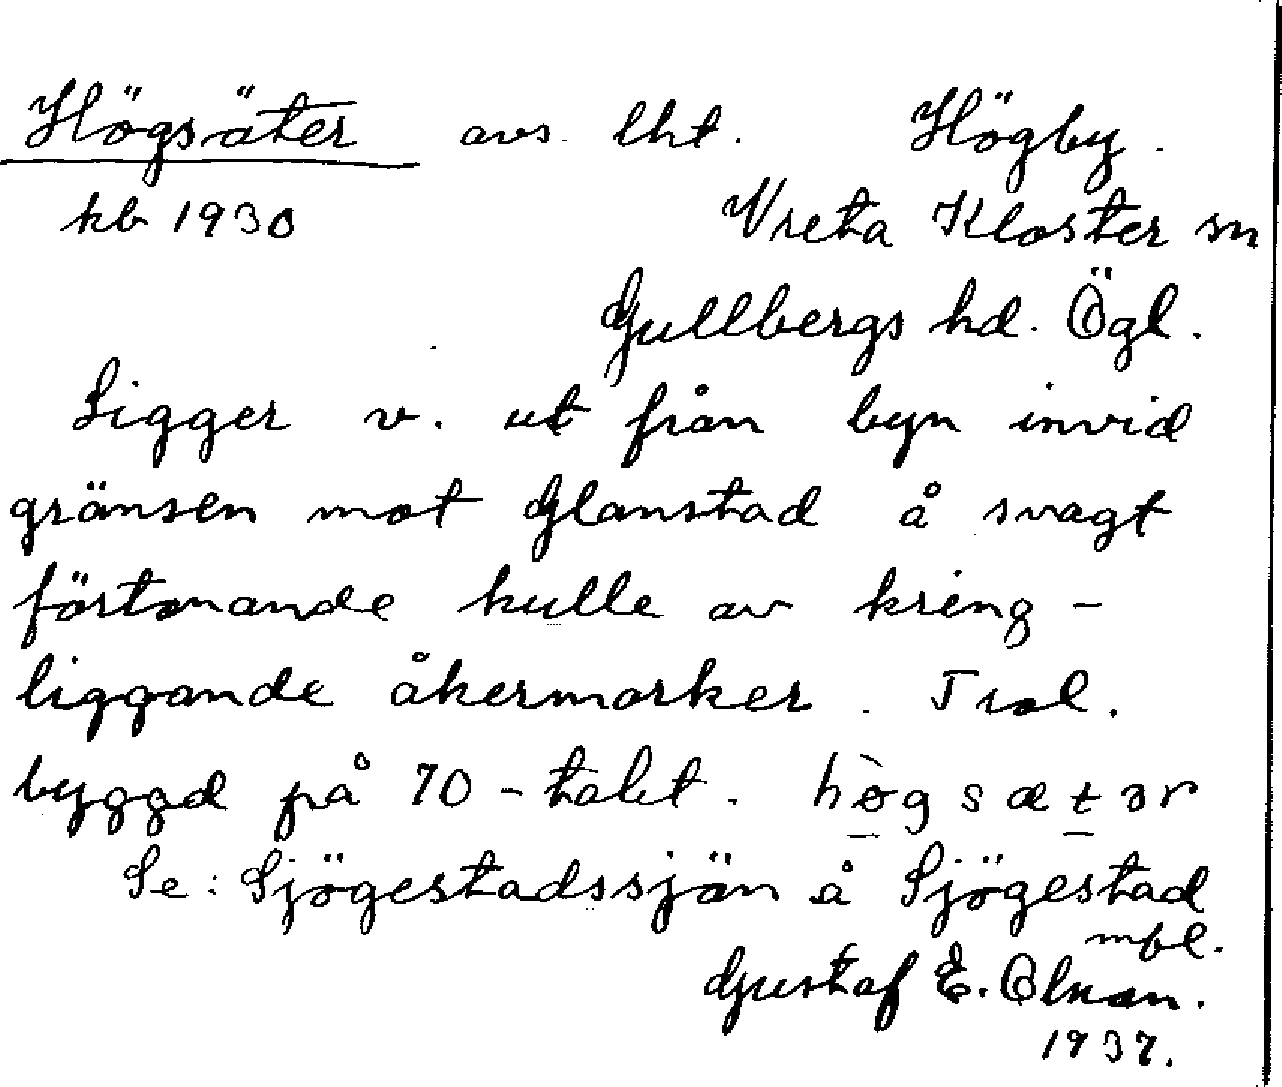 Högsäter avs. lht. Högby.
kb 1930 Vreta Kloster sn
Gullbergs hd. Ögl.
Ligger v. ut från byn invid
gränsen mot Glanstad å svagt
förtonande kulle av kring-
liggande åkermarker. Trol.
byggd på 70-talet. hògsætər
Se: Sjögestadssjön å Sjögestad
mfl.
Gustaf E.
1937.